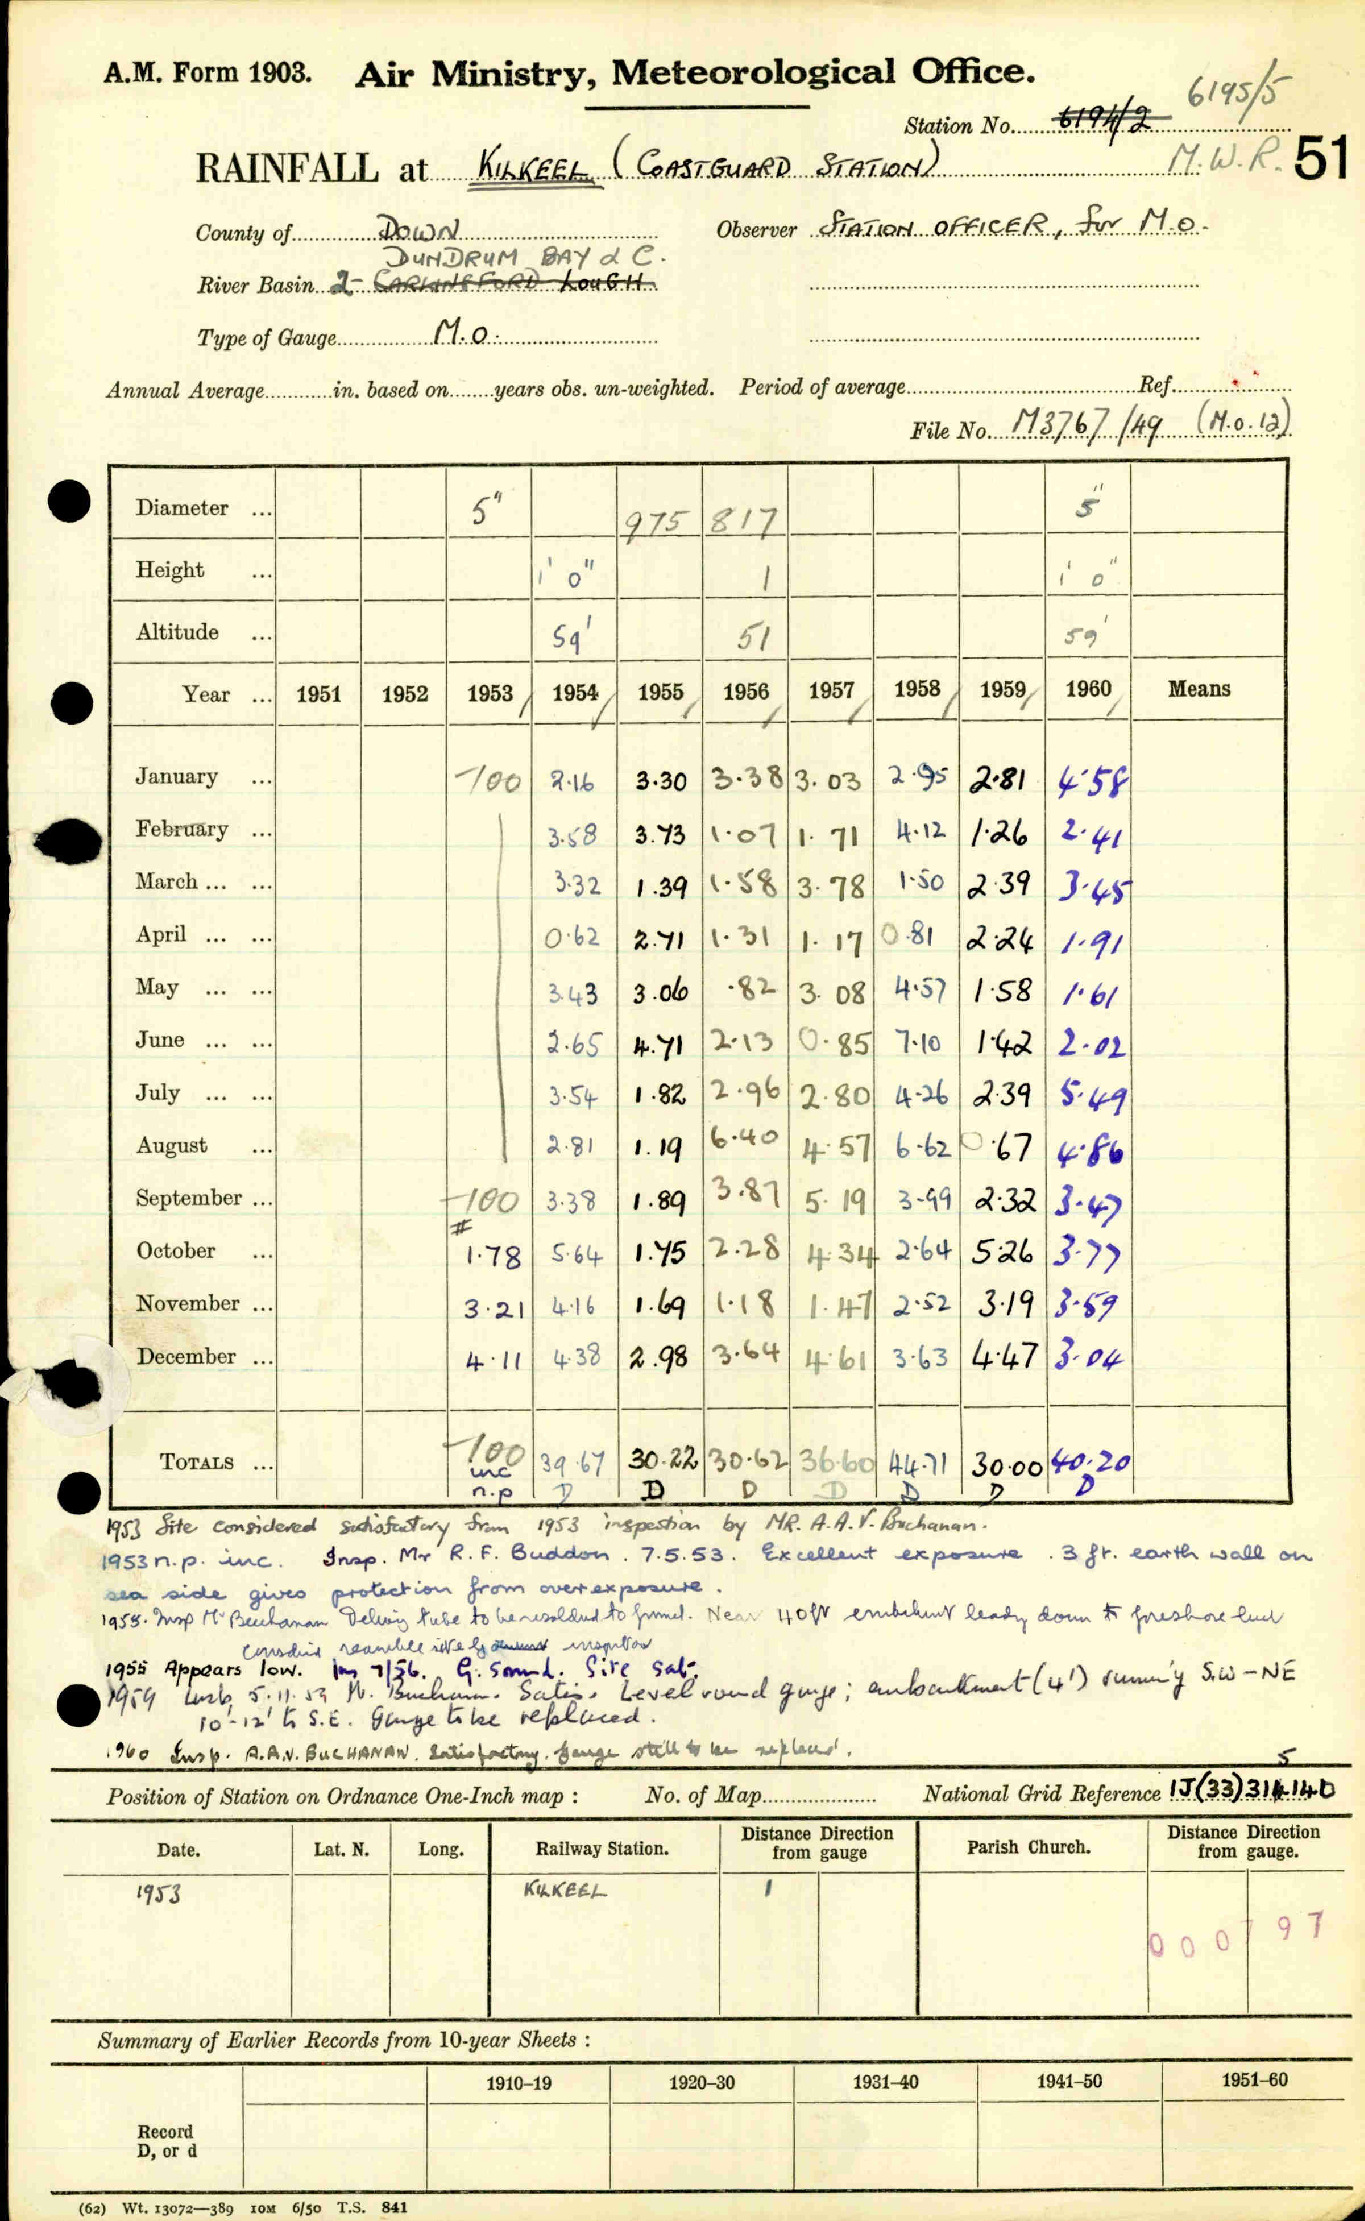 A.M. Form 1903. Air Ministry, Meteorological Office.
6195/5
Station No. 6194/2
M.W.R. 51
RAINFALL at KILKEEL (COASTGUARD STATION)
County of DOWN Observer STATION OFFICER, for M.O.
DUNDRUM BAY & C.
River Basin 2- CARLINGFORD LOUGH
Type of Gauge M.O.
Annual Average in. based on years obs. un-weighted. Period of average Ref.
File No. M3767/49 (M.O.12)
Diameter ... 5" 975 817 5"
Height ... 1' 0" 1 1' 0"
Altitude ... 59' 51 59'
Year ... 1951 1952 1953 1954 1955 1956 1957 1958 1959 1960 Means
January ... -100 2.16 3.30 3.38 3.03 2.95 2.81 4.58
February ... 3.58 3.73 1.07 1.71 4.12 1.26 2.41
March ... ... 3.32 1.39 1.58 3.78 1.50 2.39 3.45
April ... ... 0.62 2.71 1.31 1.17 0.81 2.24 1.91
May ... ... 3.43 3.06 .82 3.08 4.57 1.58 1.61
June ... ... 2.65 4.71 2.13 0.85 7.10 1.42 2.02
July ... ... 3.54 1.82 2.96 2.80 4.26 2.39 5.49
August ... 2.81 1.19 6.40 4.57 6.62 0.67 4.86
September ... -100 3.38 1.89 3.87 5.19 3.99 2.32 3.47
#
October ... 1.78 5.64 1.75 2.28 4.34 2.64 5.26 3.77
November ... 3.21 4.16 1.69 1.18 1.47 2.52 3.19 3.59
December ... 4.11 4.38 2.98 3.64 4.61 3.63 4.47 3.04
TOTALS ... -100 39.67 30.22 30.62 36.60 44.71 30.00 40.20
inc
n.p D D D D D D D
1953 Site considered satisfactory from 1953 inspection by MR. A.A.V. Buchanan.
1953 n.p. inc. Insp. Mr R. F. Buddon. 7.5.53. Excellent exposure. 3 ft. earth wall on
sea side gives protection from over exposure.
1955. Insp Mr Buchanan Delivery tube to be resoldered to funnel. Near 40ft embankment leading down to foreshore but
1955 Appears low. Ins 7/56. G. sound. Site sat.
1959 Insp. 5.11.59 Mr. Buchanan. Satis. Level round gauge; embankment (4') running S.W-NE
10'-12' to S.E. Gauge to be replaced.
1960 Insp. A.A.V. BUCHANAN. Satisfactory. Gauge still to be replaced.
5
Position of Station on Ordnance One-Inch map : No. of Map National Grid Reference IJ(33)314140
Date. Lat. N. Long. Railway Station. Distance from gauge Direction Parish Church. Distance from gauge. Direction
1953 KILKEEL 1
000797
Summary of Earlier Records from 10-year Sheets :
1910-19 1920-30 1931-40 1941-50 1951-60
Record
D, or d
(62) Wt. 13072—389 10M 6/50 T.S. 841